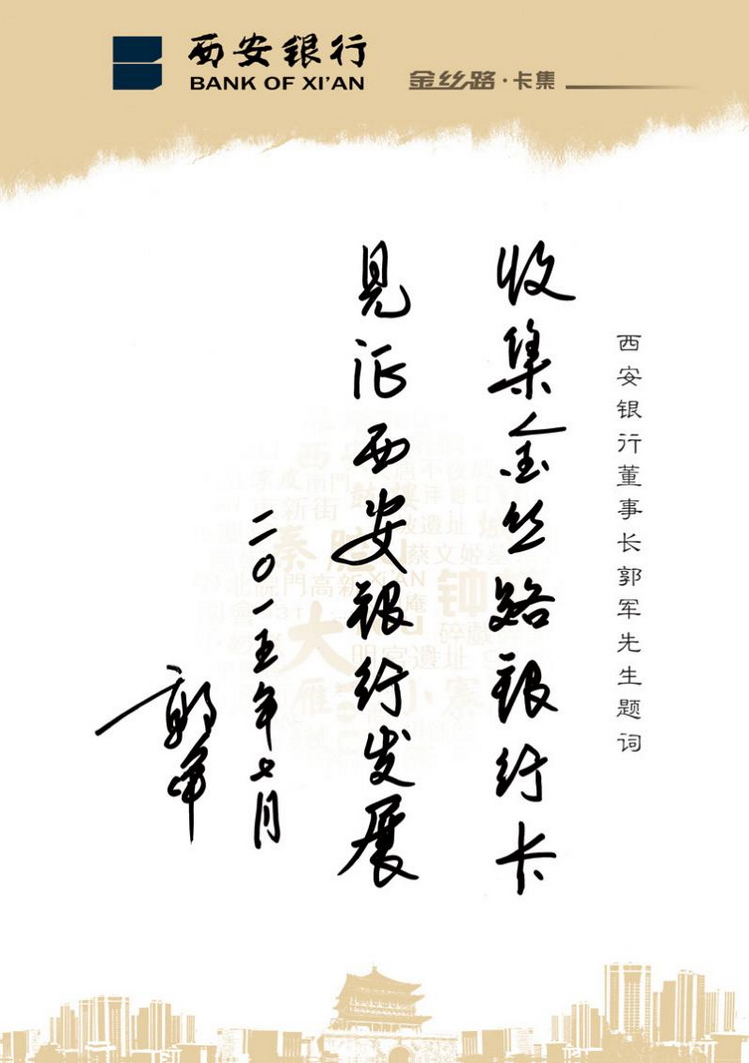 西安银行
BANK OF XI'AN
金丝路·卡集
西安银行董事长郭军先生题词
收集金丝路银行卡
见证西安银行发展
二〇一五年七月
郭军